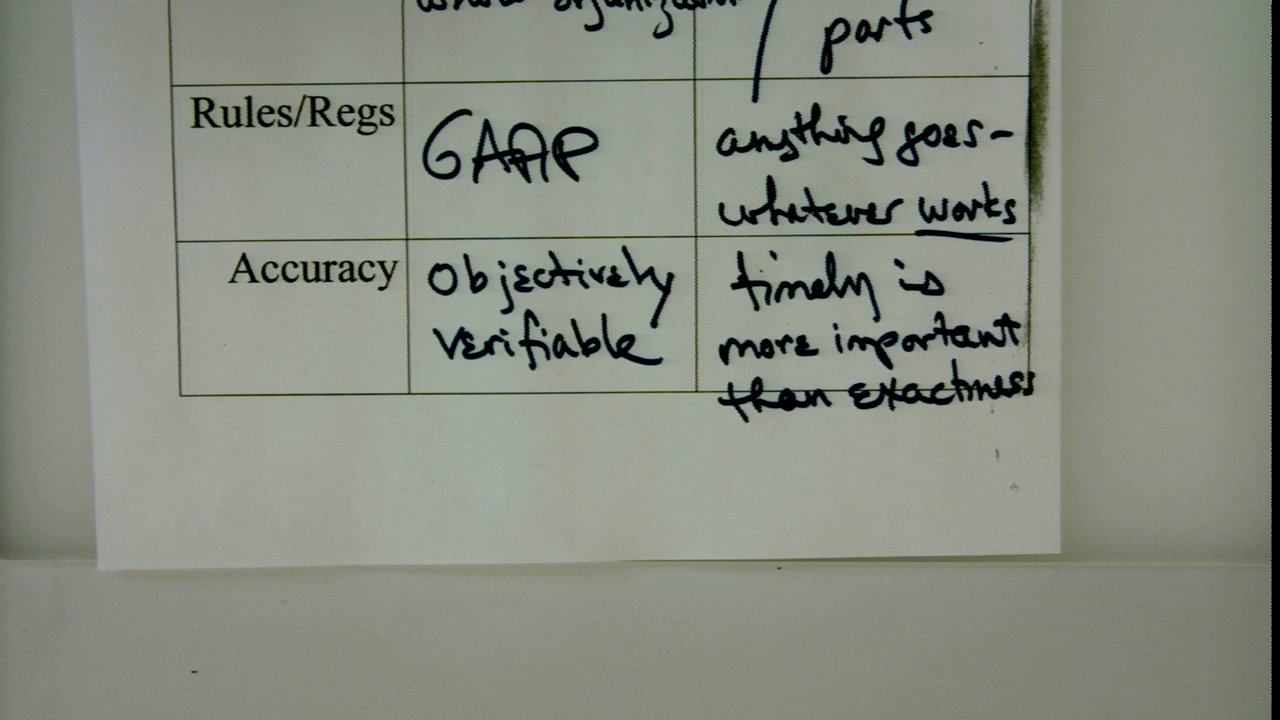 whole organization
parts
Rules/Regs
GAAP
anything goes -
whatever works
Accuracy
Objectively
verifiable
timely is
more important
than exactness